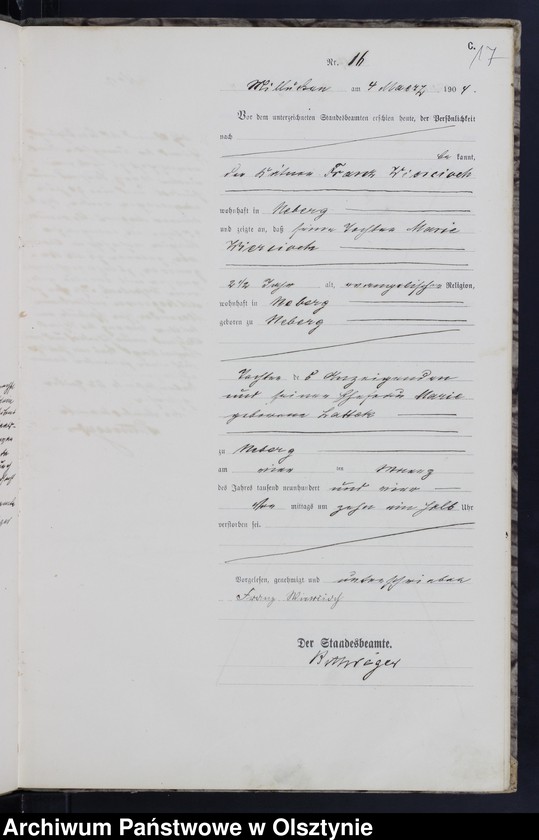 C.
17
Nr. 16
am 4 Maerz 1904.
Vor dem unterzeichneten Standesbeamten erschien heute, der Persönlichkeit
nach
be kannt,
der Kätner Franz
wohnhaft in Neberg
und zeigte an, daß seine Tochter Marie
2 1/2 Jahr alt, evangelischer Religion,
wohnhaft in Neberg
geboren zu Neberg
Tochter des Anzeigenden
und seiner Ehefrau Marie
geborene Lattek
zu Neberg
am vier ten Maerz
des Jahres tausend neunhundert und vier
Vor mittags um zehn ein halb Uhr
verstorben sei.
Vorgelesen, genehmigt und unterschrieben
Franz
Der Standesbeamte.
Archiwum Państwowe w Olsztynie